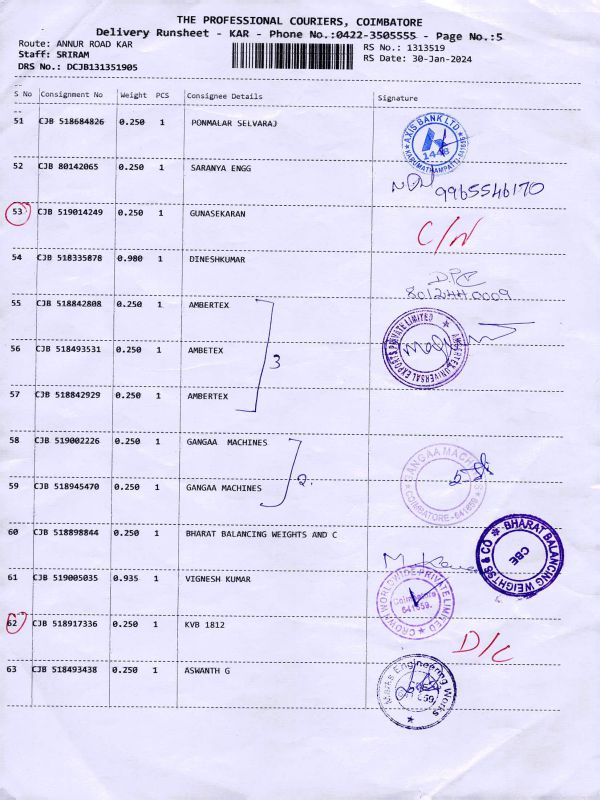 THE PROFESSIONAL COURIERS, COIMBATORE
Delivery Runsheet - KAR - Phone No.:0422-3505555 - Page No.:5
Route: ANNUR ROAD KAR
Staff: SRIRAM
DRS No.: DCJB131351905
RS No.: 1313519
RS Date: 30-Jan-2024
S No Consignment No Weight PCS Consignee Details Signature
51 CJB 518684826 0.250 1 PONMALAR SELVARAJ
AXIS BANK LTD
1448
52 CJB 80142065 0.250 1 SARANYA ENGG
9965546170
53 CJB 519014249 0.250 1 GUNASEKARAN C/N
54 CJB 518335878 0.980 1 DINESHKUMAR
8012440009
55 CJB 518842808 0.250 1 AMBERTEX
56 CJB 518493531 0.250 1 AMBETEX 3
AMBERTEX UNIVERSAL EXPORTS PRIVATE LIMITED
57 CJB 518842929 0.250 1 AMBERTEX
58 CJB 519002226 0.250 1 GANGAA MACHINES
2
GANGAA MACHINES
COIMBATORE - 641659
59 CJB 518945470 0.250 1 GANGAA MACHINES
60 CJB 518898844 0.250 1 BHARAT BALANCING WEIGHTS AND C
BHARAT BALANCING WEIGHTSS & CO
CBE
61 CJB 519005035 0.935 1 VIGNESH KUMAR
CROWNWORLDWIDE PRIVATE LIMITED
Coimbatore
641659.
62 CJB 518917336 0.250 1 KVB 1812 D/C
63 CJB 518493438 0.250 1 ASWANTH G
Engineering Works